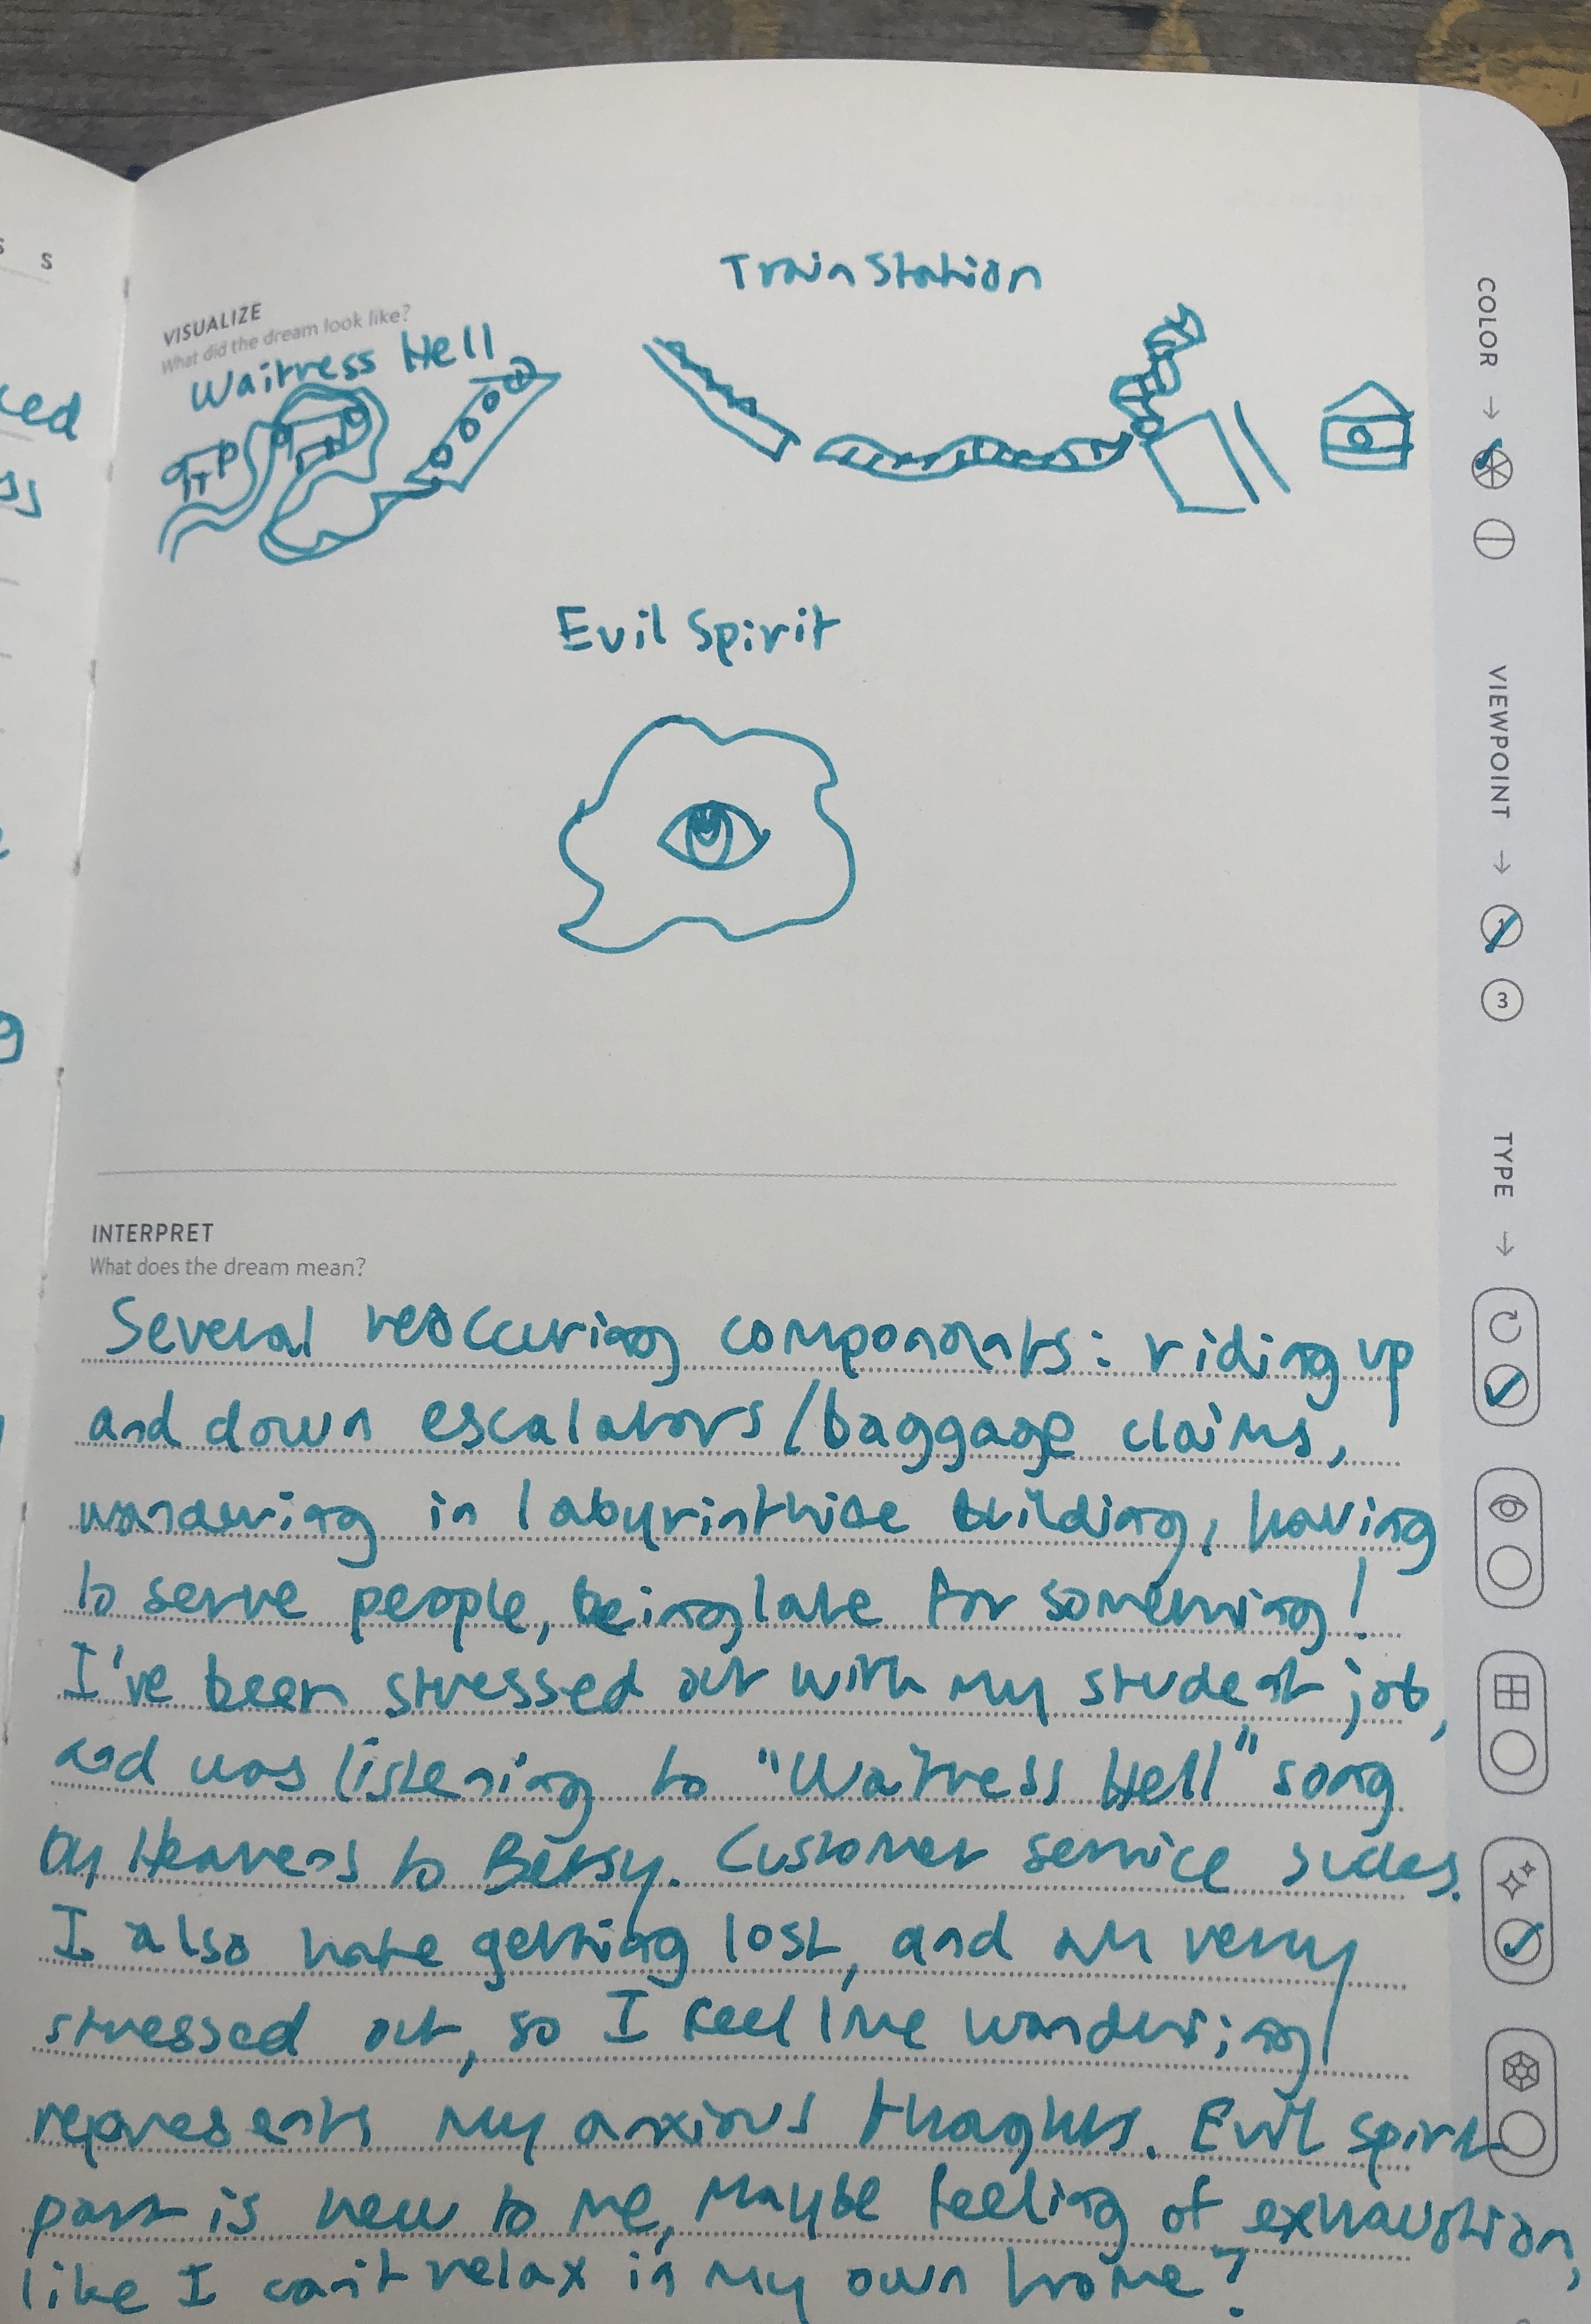 s
s
ced
ss
g
VISUALIZE
What did the dream look like?
Waitress Hell
Train Station
Evil Spirit
INTERPRET
What does the dream mean?
Several reoccuring components: riding up
and down escalators/baggage claims,
wandering in labyrinthine building, having
to serve people, being late for something!
I've been stressed out with my student job,
and was listening to "Waitress Hell" song
by Heavens to Betsy. Customer service sucks.
I also hate getting lost, and am very
stressed out, so I feel like wandering
represents my anxious thoughts. Evil spirit
part is new to me, maybe feeling of exhaustion,
like I can't relax in my own home?
COLOR →
VIEWPOINT →
1
3
TYPE →